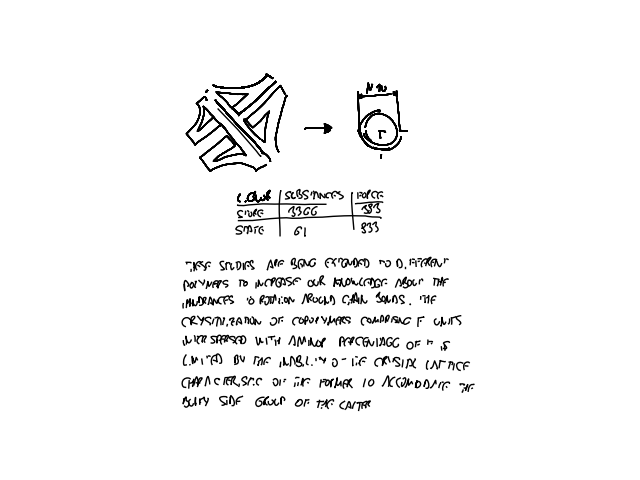 SUBSTANCES FORCE
STORE 3366 393
STATE 61 833
THESE STUDIES ARE BEING EXTENDED TO DIFFERENT
POLYMERS TO INCREASE OUR KNOWLEDGE ABOUT THE
HINDRANCES TO ROTATION AROUND CHAIN BONDS. THE
CRYSTALLIZATION OF COPOLYMERS COMPRISING F UNITS
INTERSPERSED WITH A MINOR PERCENTAGE OF IS
LIMITED BY THE INABILITY OF THE CRYSTAL LATTICE
CHARACTERISTIC OF THE FORMER TO ACCOMODATE THE
BULKY SIDE GROUP OF THE LATTER